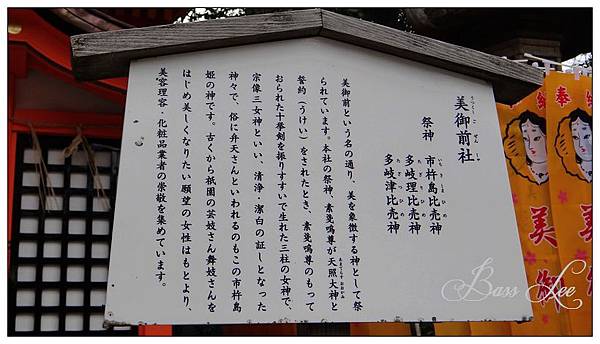 美御前社
うつくしごぜんしゃ
祭神
市杵島比売神
いちきしまひめ
多岐理比売神
たぎりひめ
多岐津比売神
たぎつひめ
美御前という名の通り、美を象徴する神として祭
られています。本社の祭神、素戔鳴尊が天照大神と
あまてらすおおかみ
誓約(うけい)をされたとき、素戔鳴尊のもって
おられた十挙剣を振りすすいで生れた三柱の女神で、
宗像三女神といい、清浄・潔白の証しとなった
神々で、俗に弁天さんといわれるのもこの市杵島
姫の神です。古くから祇園の芸妓さん舞妓さんを
はじめ美しくなりたい願望の女性はもとより、
美容理容・化粧品業者の崇敬を集めています。
奉
美御
Bass Lee